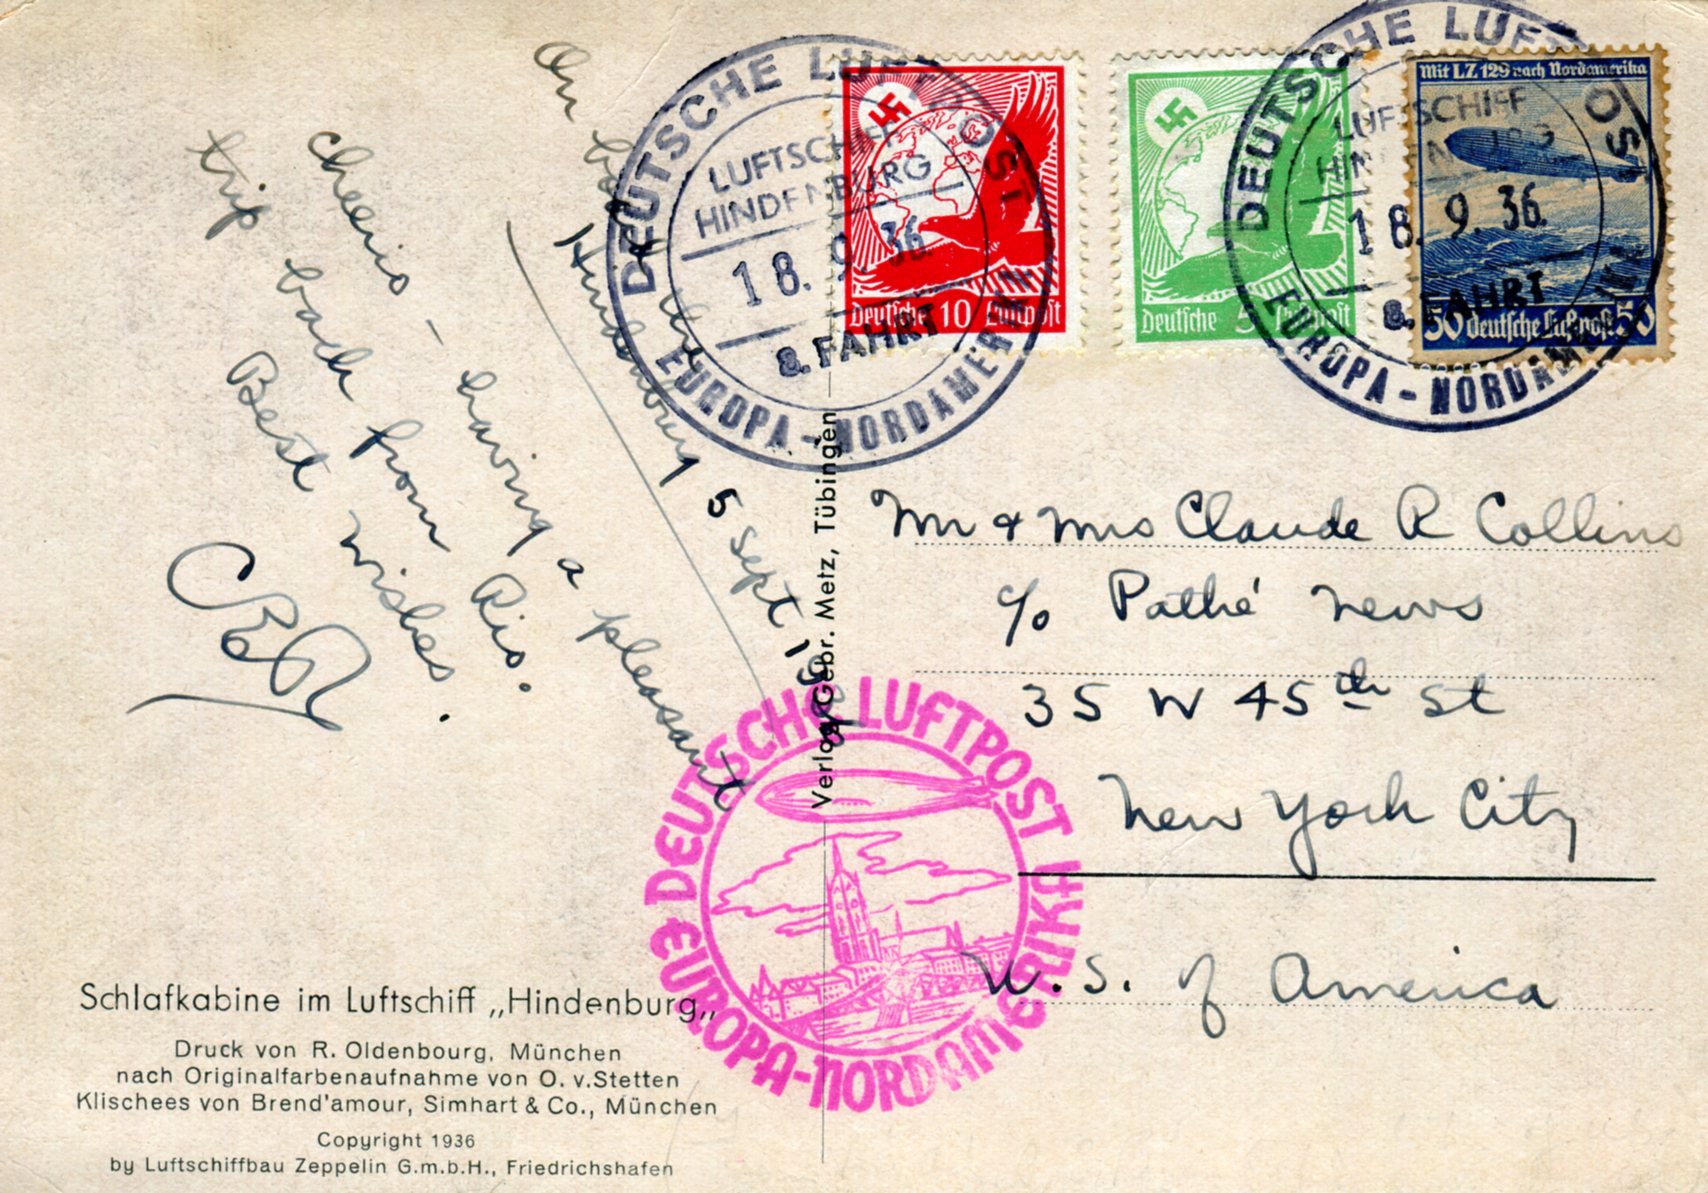 On board the
Hindenburg 5 Sept
Cheerio - having a pleasant
trip back from Rio.
Best wishes.
DEUTSCHE LUFTPOST
LUFTSCHIFF
HINDENBURG
18. 9. 36.
8. FAHRT
EUROPA - NORDAMERIKA
Deutsche 10 Luftpost
Deutsche 5 Luftpost
DEUTSCHE LUFTPOST
LUFTSCHIFF
HINDENBURG
18. 9. 36.
8. FAHRT
EUROPA - NORDAMERIKA
Mit LZ 129 nach Nordamerika
50 deutsche Luftpost 50
Verlag Gebr. Metz, Tübingen
Mr & Mrs Claude R Collins
c/o Pathé News
35 W 45th St
New York City
U. S. of America
DEUTSCHE LUFTPOST
EUROPA-NORDAMERIKA
Schlafkabine im Luftschiff „Hindenburg„
Druck von R. Oldenbourg, München
nach Originalfarbenaufnahme von O. v. Stetten
Klischees von Brend'amour, Simhart & Co., München
Copyright 1936
by Luftschiffbau Zeppelin G.m.b.H., Friedrichshafen